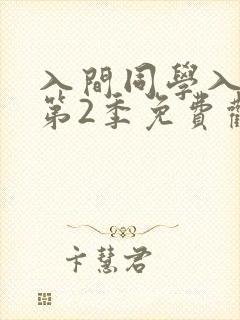 入間同學入
第2季免費
卞慧君